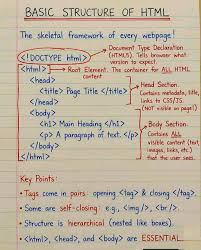 BASIC STRUCTURE OF HTML
The skeletal framework of every webpage!
<!DOCTYPE html>
Document Type Declaration
(HTML5). Tells browser what
version to expect.
<html>
Root Element. The container for ALL HTML
content
<head>
<title> Page Title </title>
</head>
Head Section.
Contains metadata, title,
links to CSS/JS.
(NOT visible on page)
<body>
<h1> Main Heading </h1>
<p> A paragraph of text. </p>
</body>
</html>
Body Section.
Contains ALL
visible content (text,
images, links, etc.)
that the user sees.
Key Points:
• Tags come in pairs: opening <tag> & closing </tag>.
• Some are self-closing: e.g., <img/>, <br/>.
• Structure is hierarchical (nested like boxes).
• <html>, <head>, and <body> are ESSENTIAL.